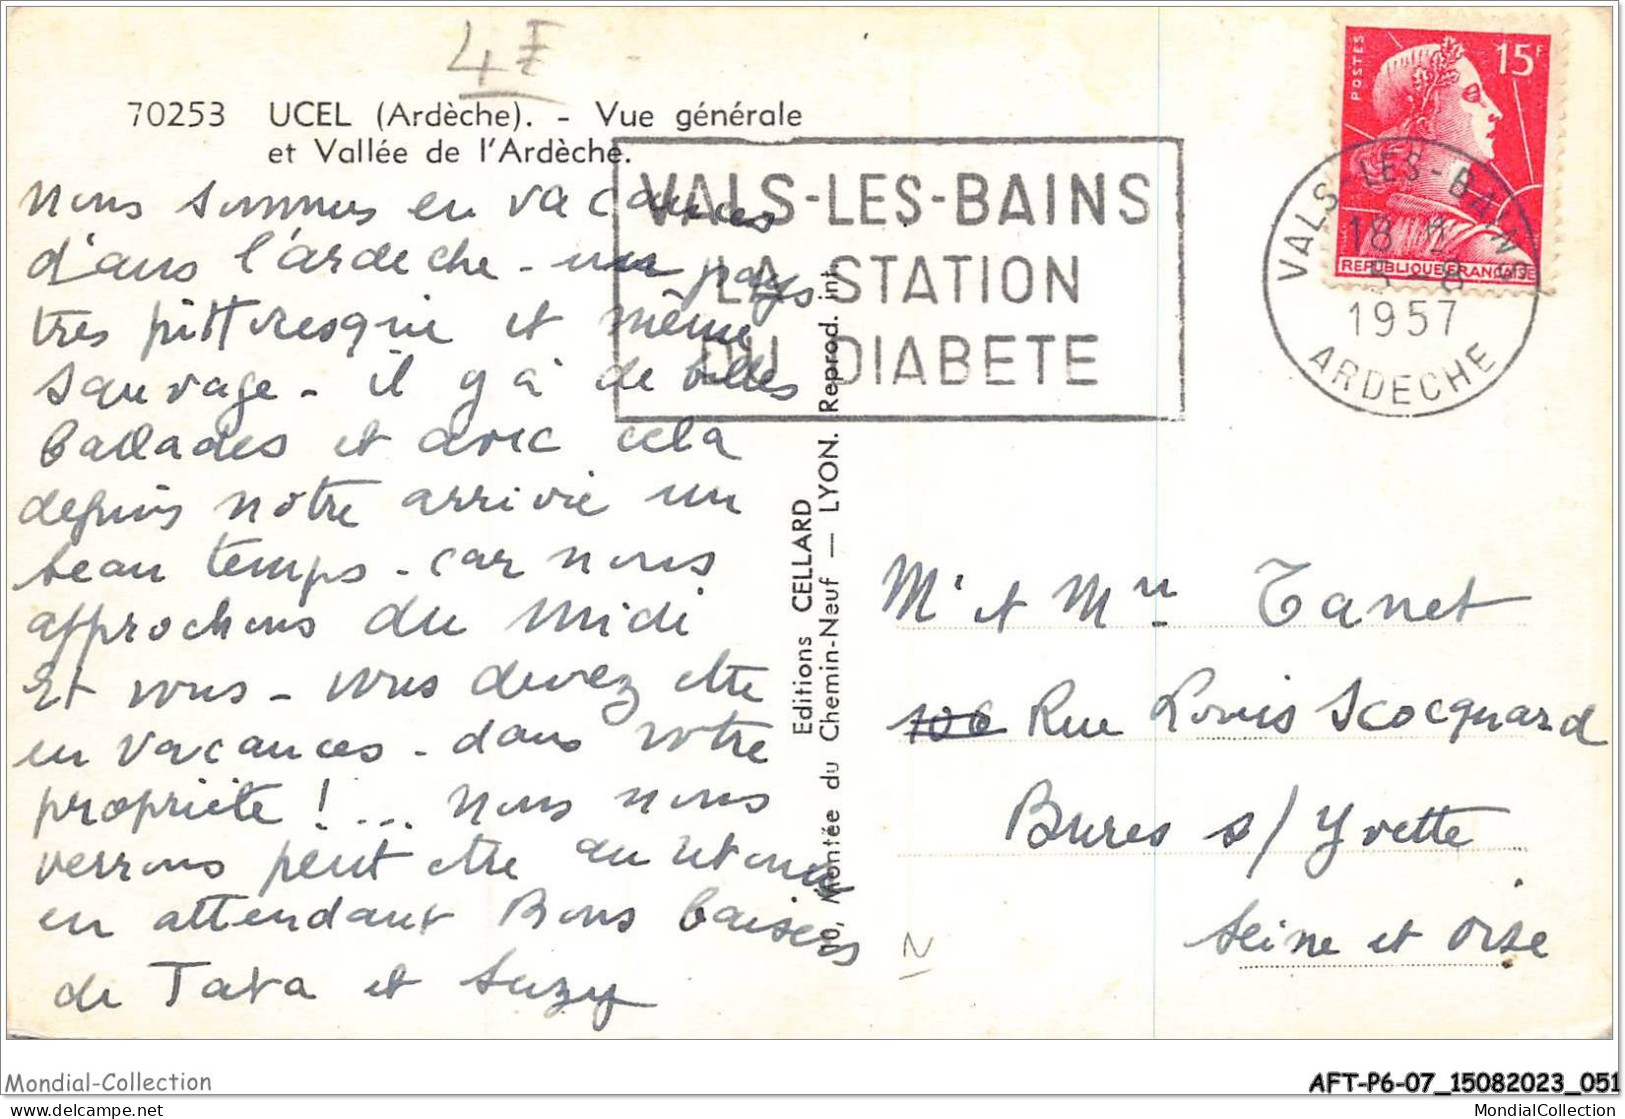 4F
70253 UCEL (Ardèche). - Vue générale
et Vallée de l'Ardèche.
Nous sommes en vacances
d'ans l'ardeche - un pays
tres pittoresque et même
sauvage - il y à de belles
ballades et avec cela
depuis notre arrivie un
beau temps - car nous
approchons du Midi
Et vous - vous devez etre
en vacances - dans votre
propriète ! ... Nous nous
verrons peut etre au retour
en attendant Bons baisers
de Tata et Suzy
Editions CELLARD
10, Montée du Chemin-Neuf — LYON. Reprod. int.
VALS-LES-BAINS
LA STATION
DU DIABETE
POSTES
15F
REPUBLIQUE FRANÇAISE
VALS-LES-BAINS
18 H
5 - 8
1957
ARDECHE
Mr et Mme Tanet
106 Rue Louis Scocquard
Bures s/ Yvette
Seine et Oise
Mondial-Collection
AFT-P6-07_15082023_051
www.delcampe.net
MondialCollection